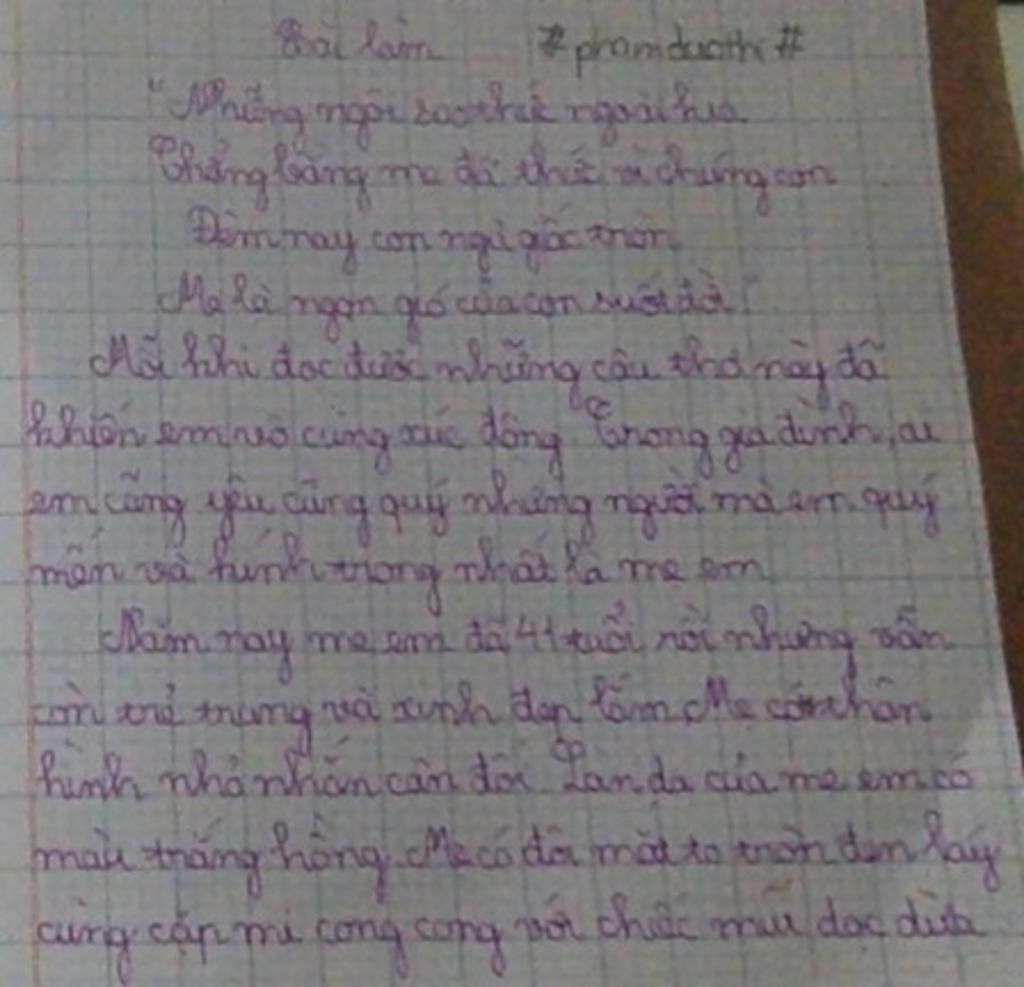 Bài làm #phamducth#
"Những ngôi sao thức ngoài kia
Chẳng bằng mẹ đã thức vì chúng con
Đêm nay con ngủ giấc tròn
Mẹ là ngọn gió của con suốt đời."
Mỗi khi đọc được những câu thơ này đã
khiến em vô cùng xúc động Trong gia đình, ai
em cũng yêu cũng quý nhưng người mà em quý
mến và kính trọng nhất là mẹ em
Năm nay mẹ em đã 41 tuổi rồi nhưng vẫn
còn trẻ trung và xinh đẹp lắm. Mẹ có thân
hình nhỏ nhắn cân đối Làn da của mẹ em có
màu trắng hồng. Mẹ có đôi mắt to tròn đen láy
cùng cặp mi cong cong với chiếc mũi dọc dừa